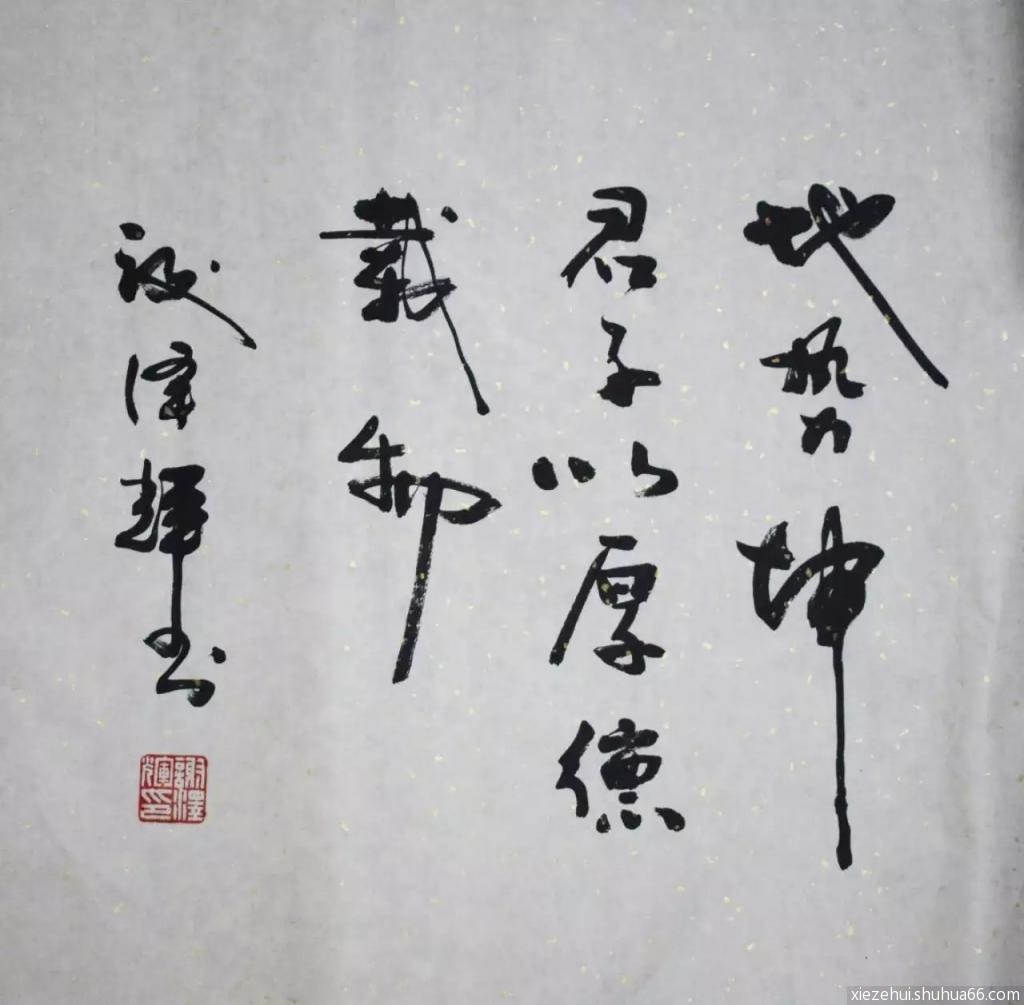 地勢坤
君子以厚德
載物
謝澤輝书
謝澤輝印
xiezehui.shuhua66.com